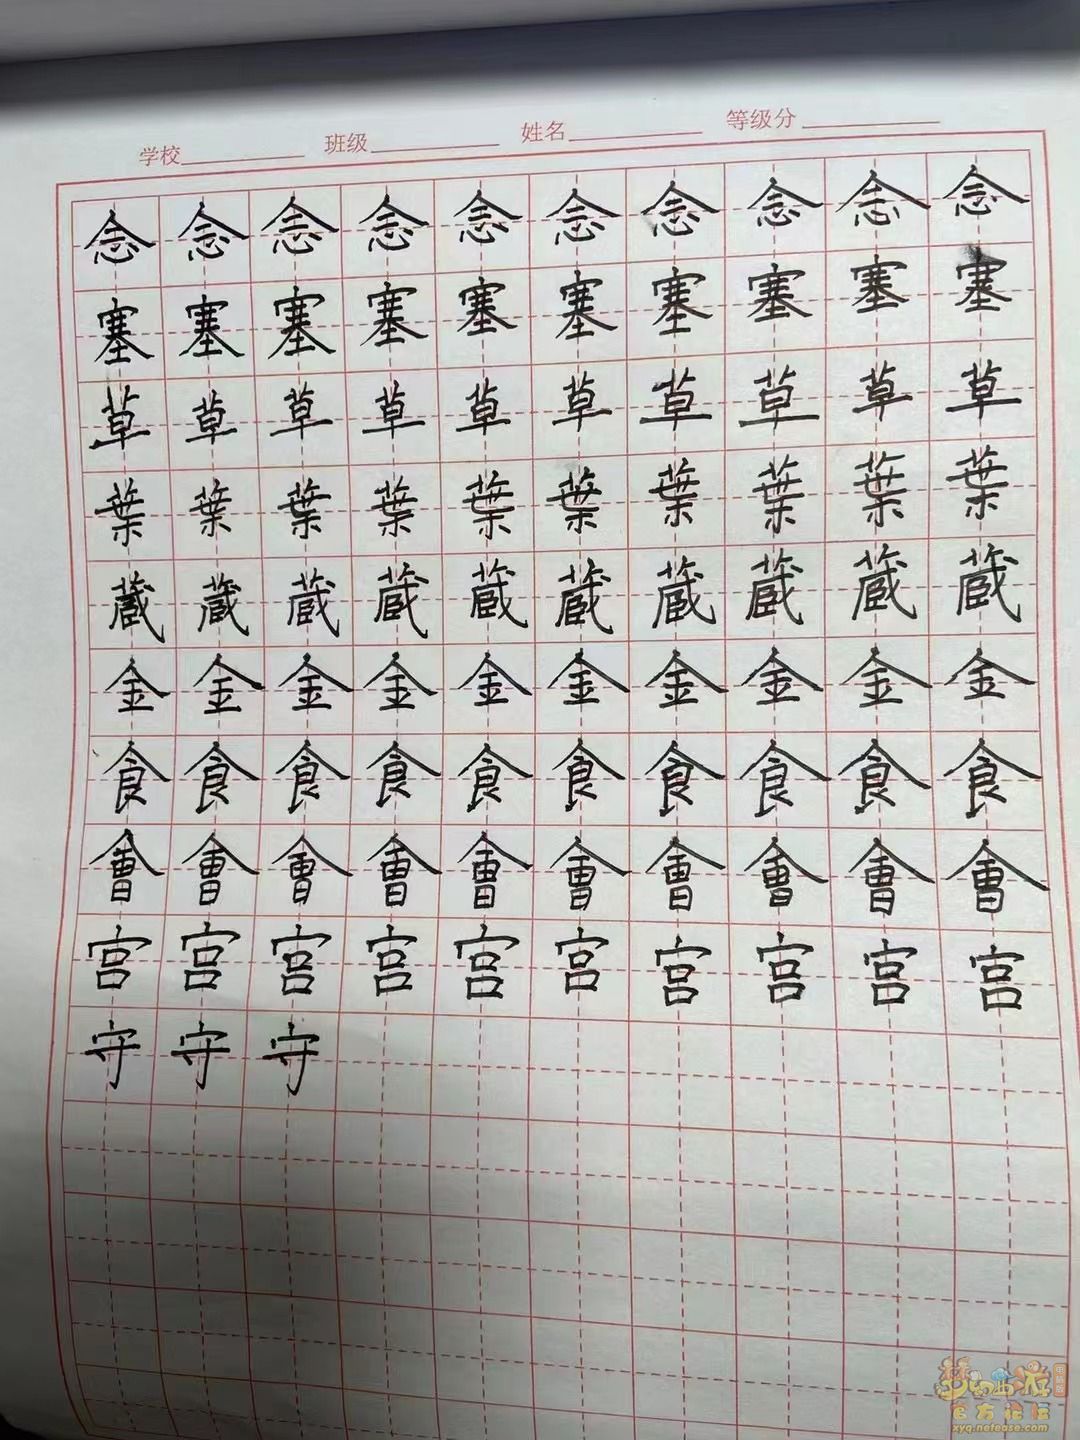 学校 班级 姓名 等级分
念念念念念念念念念念
塞塞塞塞塞塞塞塞塞塞
草草草草草草草草草草
葉葉葉葉葉葉葉葉葉葉
蔵蔵蔵蔵蔵蔵蔵蔵蔵蔵
金金金金金金金金金金
食食食食食食食食食食
會會會會會會會會會會
宫宫宫宫宫宫宫宫宫宫
守守守
梦幻西游 电脑版
官方论坛
xyq.netease.com